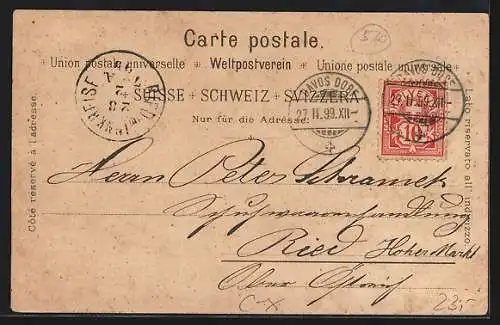 Carte postale.
Union postale universelle + Weltpostverein + Unione postale universale
SUISSE + SCHWEIZ + SVIZZERA
Nur für die Adresse.
Côté réservé à l'adresse.
Lato riservato all' indirizzo
RIED INNKREISE
DAVOS DORF
27.II.99.XII-
DAVOS DORF
27.II.99.XII-
10
Herrn Peter Schramek
Schuhwarenhandlung
Ried Hoher Markt
Ober Östreich
C-X
23,-